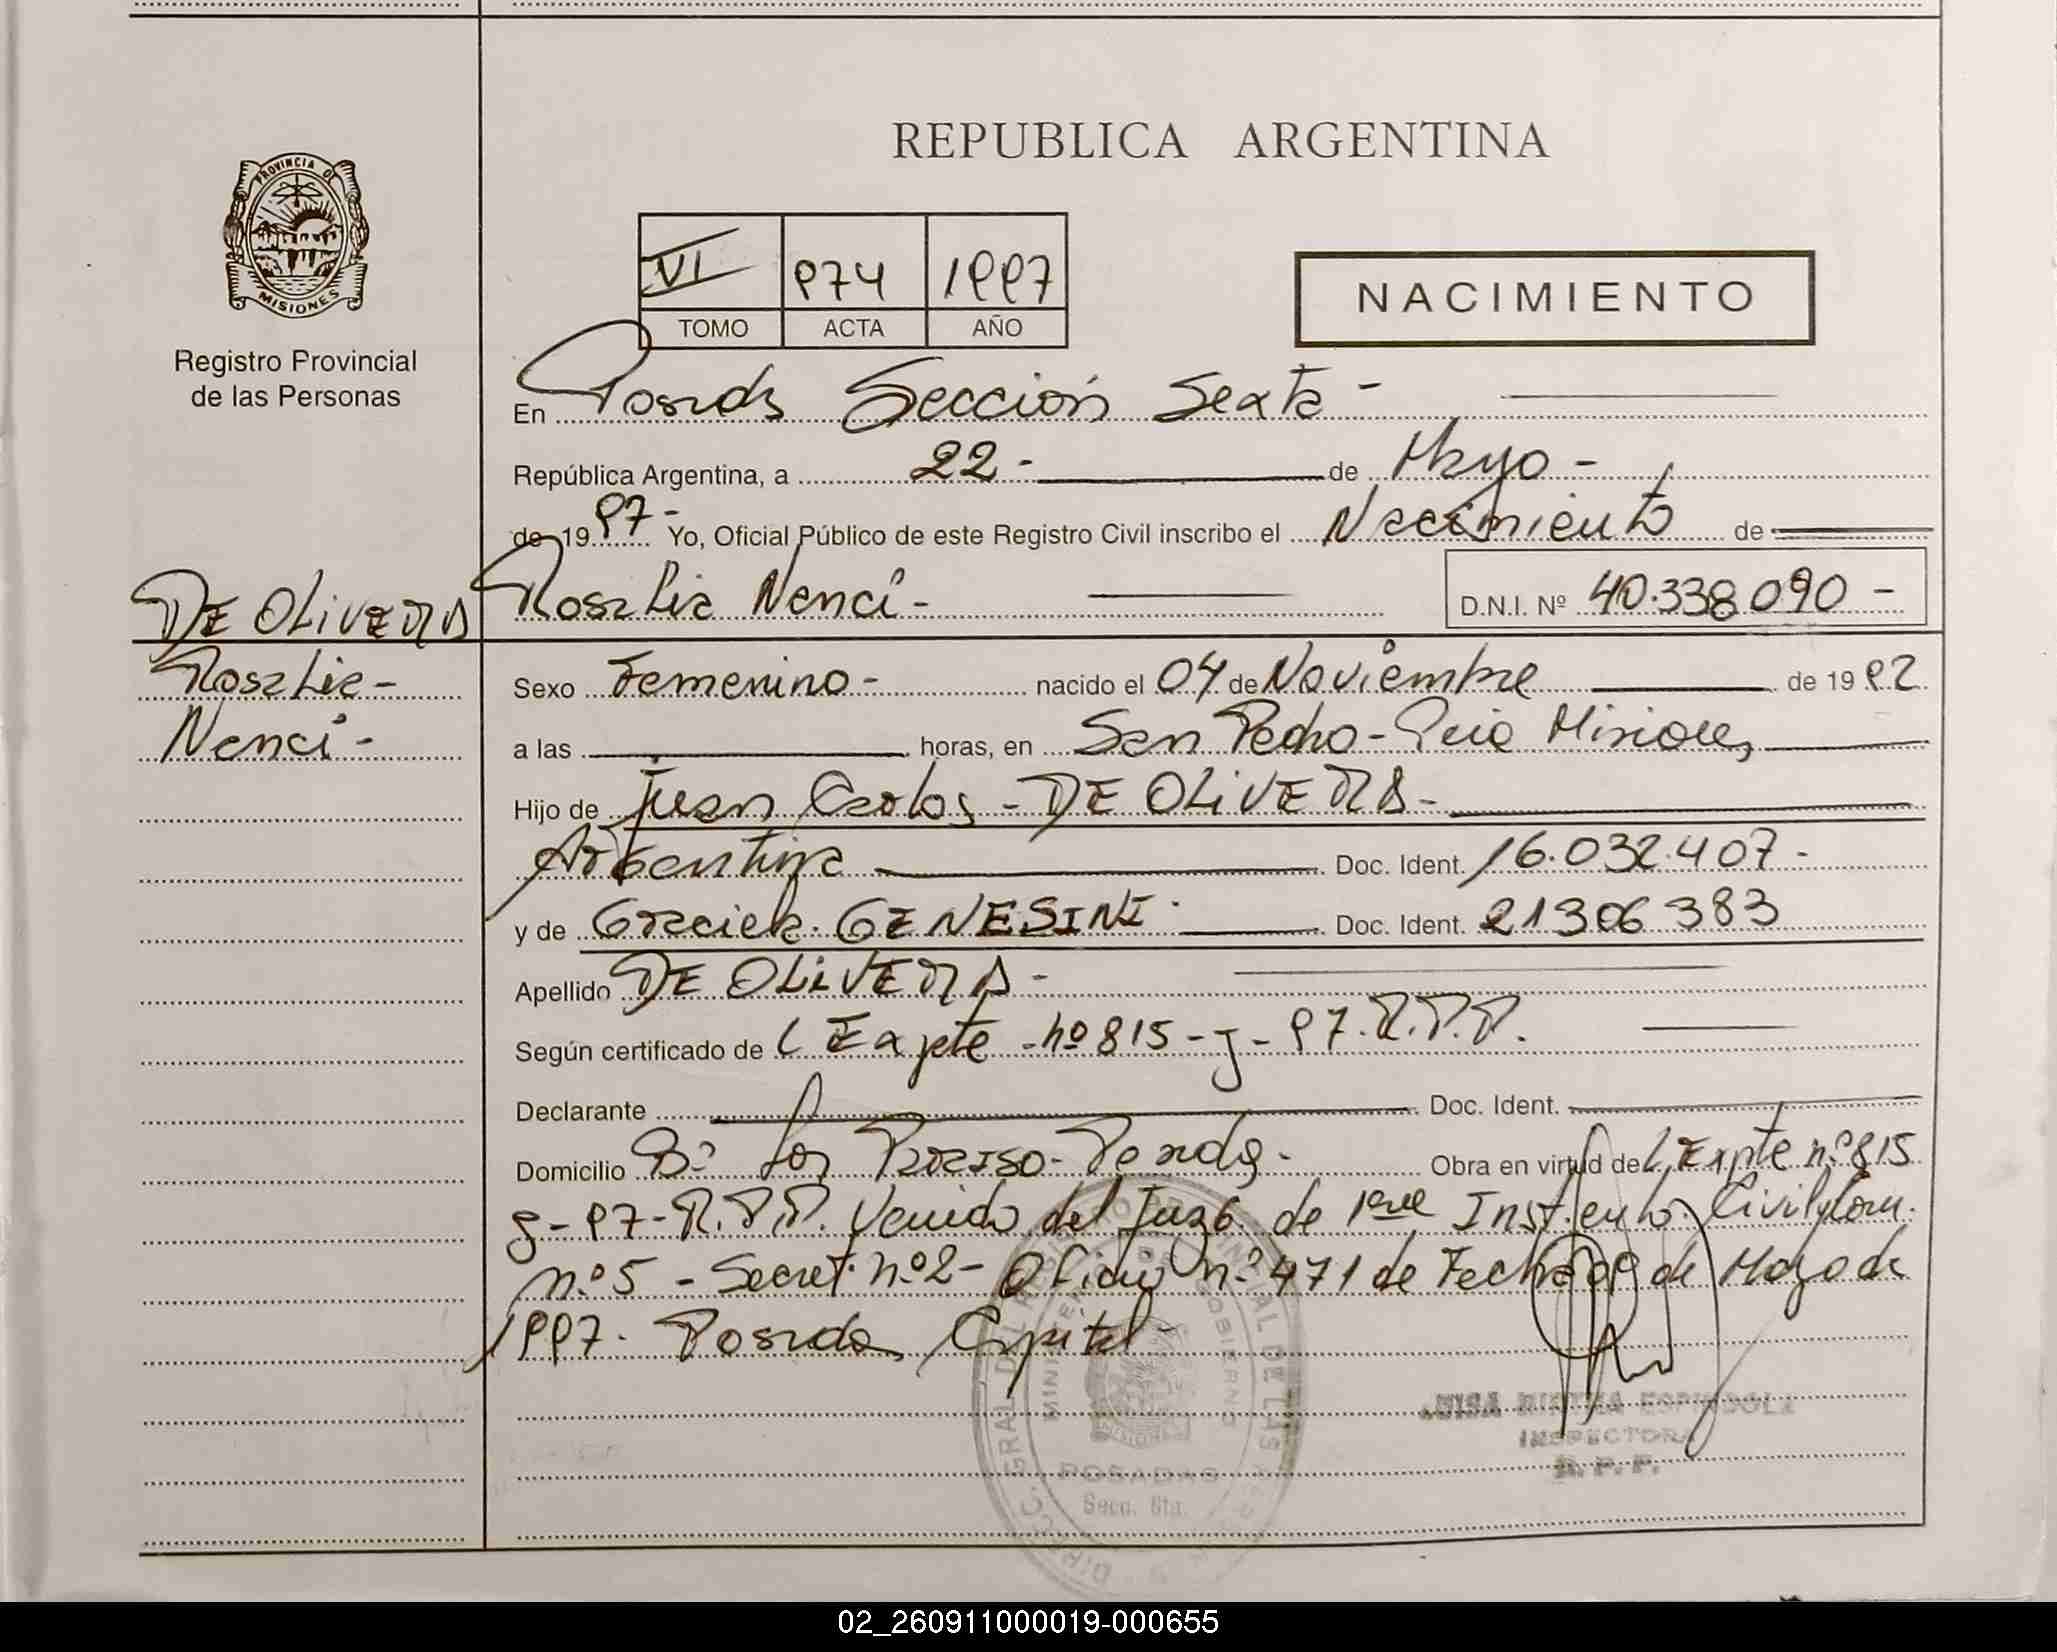 REPUBLICA ARGENTINA
PROVINCIA DE
MISIONES
Registro Provincial
de las Personas
VI 974 1997
TOMO ACTA AÑO
NACIMIENTO
En Posadas Sección Sexta -
República Argentina, a 22 - de Mayo -
de 1997 - Yo, Oficial Público de este Registro Civil inscribo el Nacimiento de
Rosalia Nenci -
D.N.I. Nº 40.338.090 -
DE OLIVERA
Rosalia -
Nenci -
Sexo Femenino - nacido el 04 de Noviembre de 1992
a las horas, en San Pedro - Pcia Misiones
Hijo de Juan Carlos - DE OLIVERA -
Argentina Doc. Ident. 16.032.407 -
y de Graciela GENESINI - Doc. Ident. 21306383
Apellido DE OLIVERA -
Según certificado de L Expte - nº 815 - J - 97. R.P.P.
Declarante Doc. Ident.
Domicilio Bº Posadas - Obra en virtud de L Expte nº 815
g - 97 - R.P.P. Venido del Juzg. de 1era Inst. en lo Civil y Com.
nº 5 - Secret. nº 2 - Oficio nº 471 de Fecha 09 de Mayo de
1997. Posadas, Capital -
MINISTERIO DE GOBIERNO
POSADAS
Secc. 6ta.
LUISA MIRTHA ESPINDOLA
INSPECTORA
R. P. P.
02_260911000019-000655